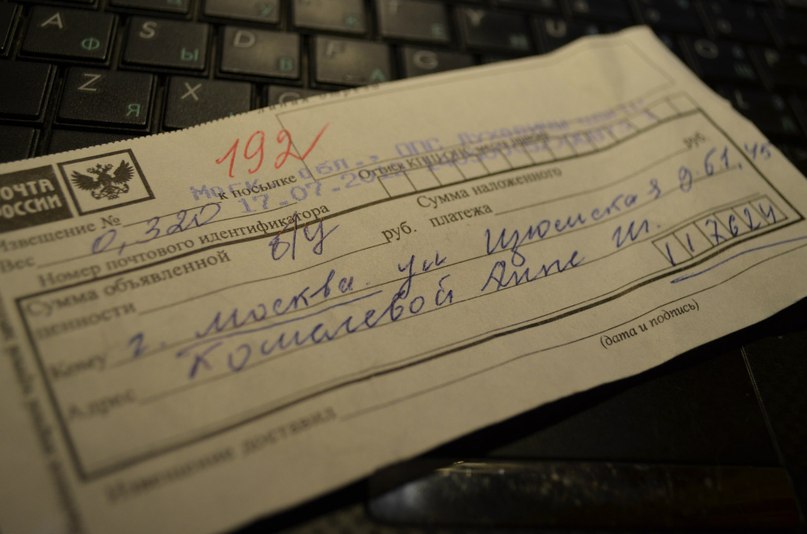 ПОЧТА
РОССИИ
192
Моск. обл., ОПС
Извещение № к посылке 17-07-20
Вес 0,320
Номер почтового идентификатора
Сумма объявленной б/у руб. Сумма наложенного
ценности платежа руб.
Кому г. Москва. ул Изюмская д 61, 45
Адрес Комалевой Анне Ш. 117624
Извещение доставил
(дата и подпись)
A Ф
S Ы
D В
F А
G П
Z Я
X